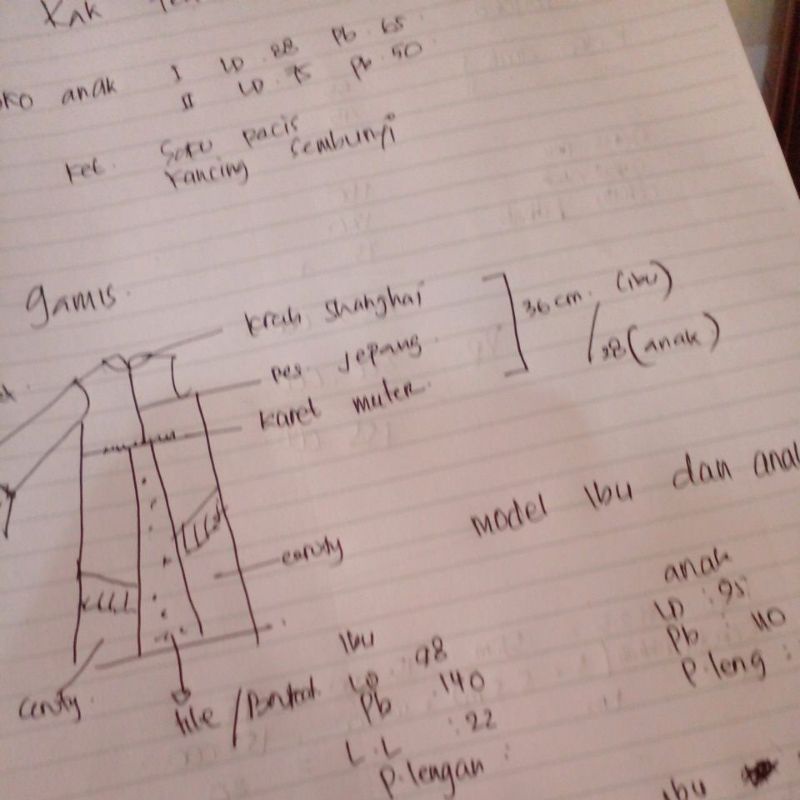 Kak
oko anak I LD 88 Pb 65
II LD 75 Pb 50
Ket. Saku pacis
kancing sembunyi
gamis.
krah shanghai
res jepang
karet muter
36 cm. (ibu)
/38 (anak)
Model Ibu dan anak
ceruty
ceruty
tile / Brukat
Ibu
LD 98
Pb 140
L.L : 22
P.lengan :
anak
LD : 95
Pb : 110
P.leng :
ibu